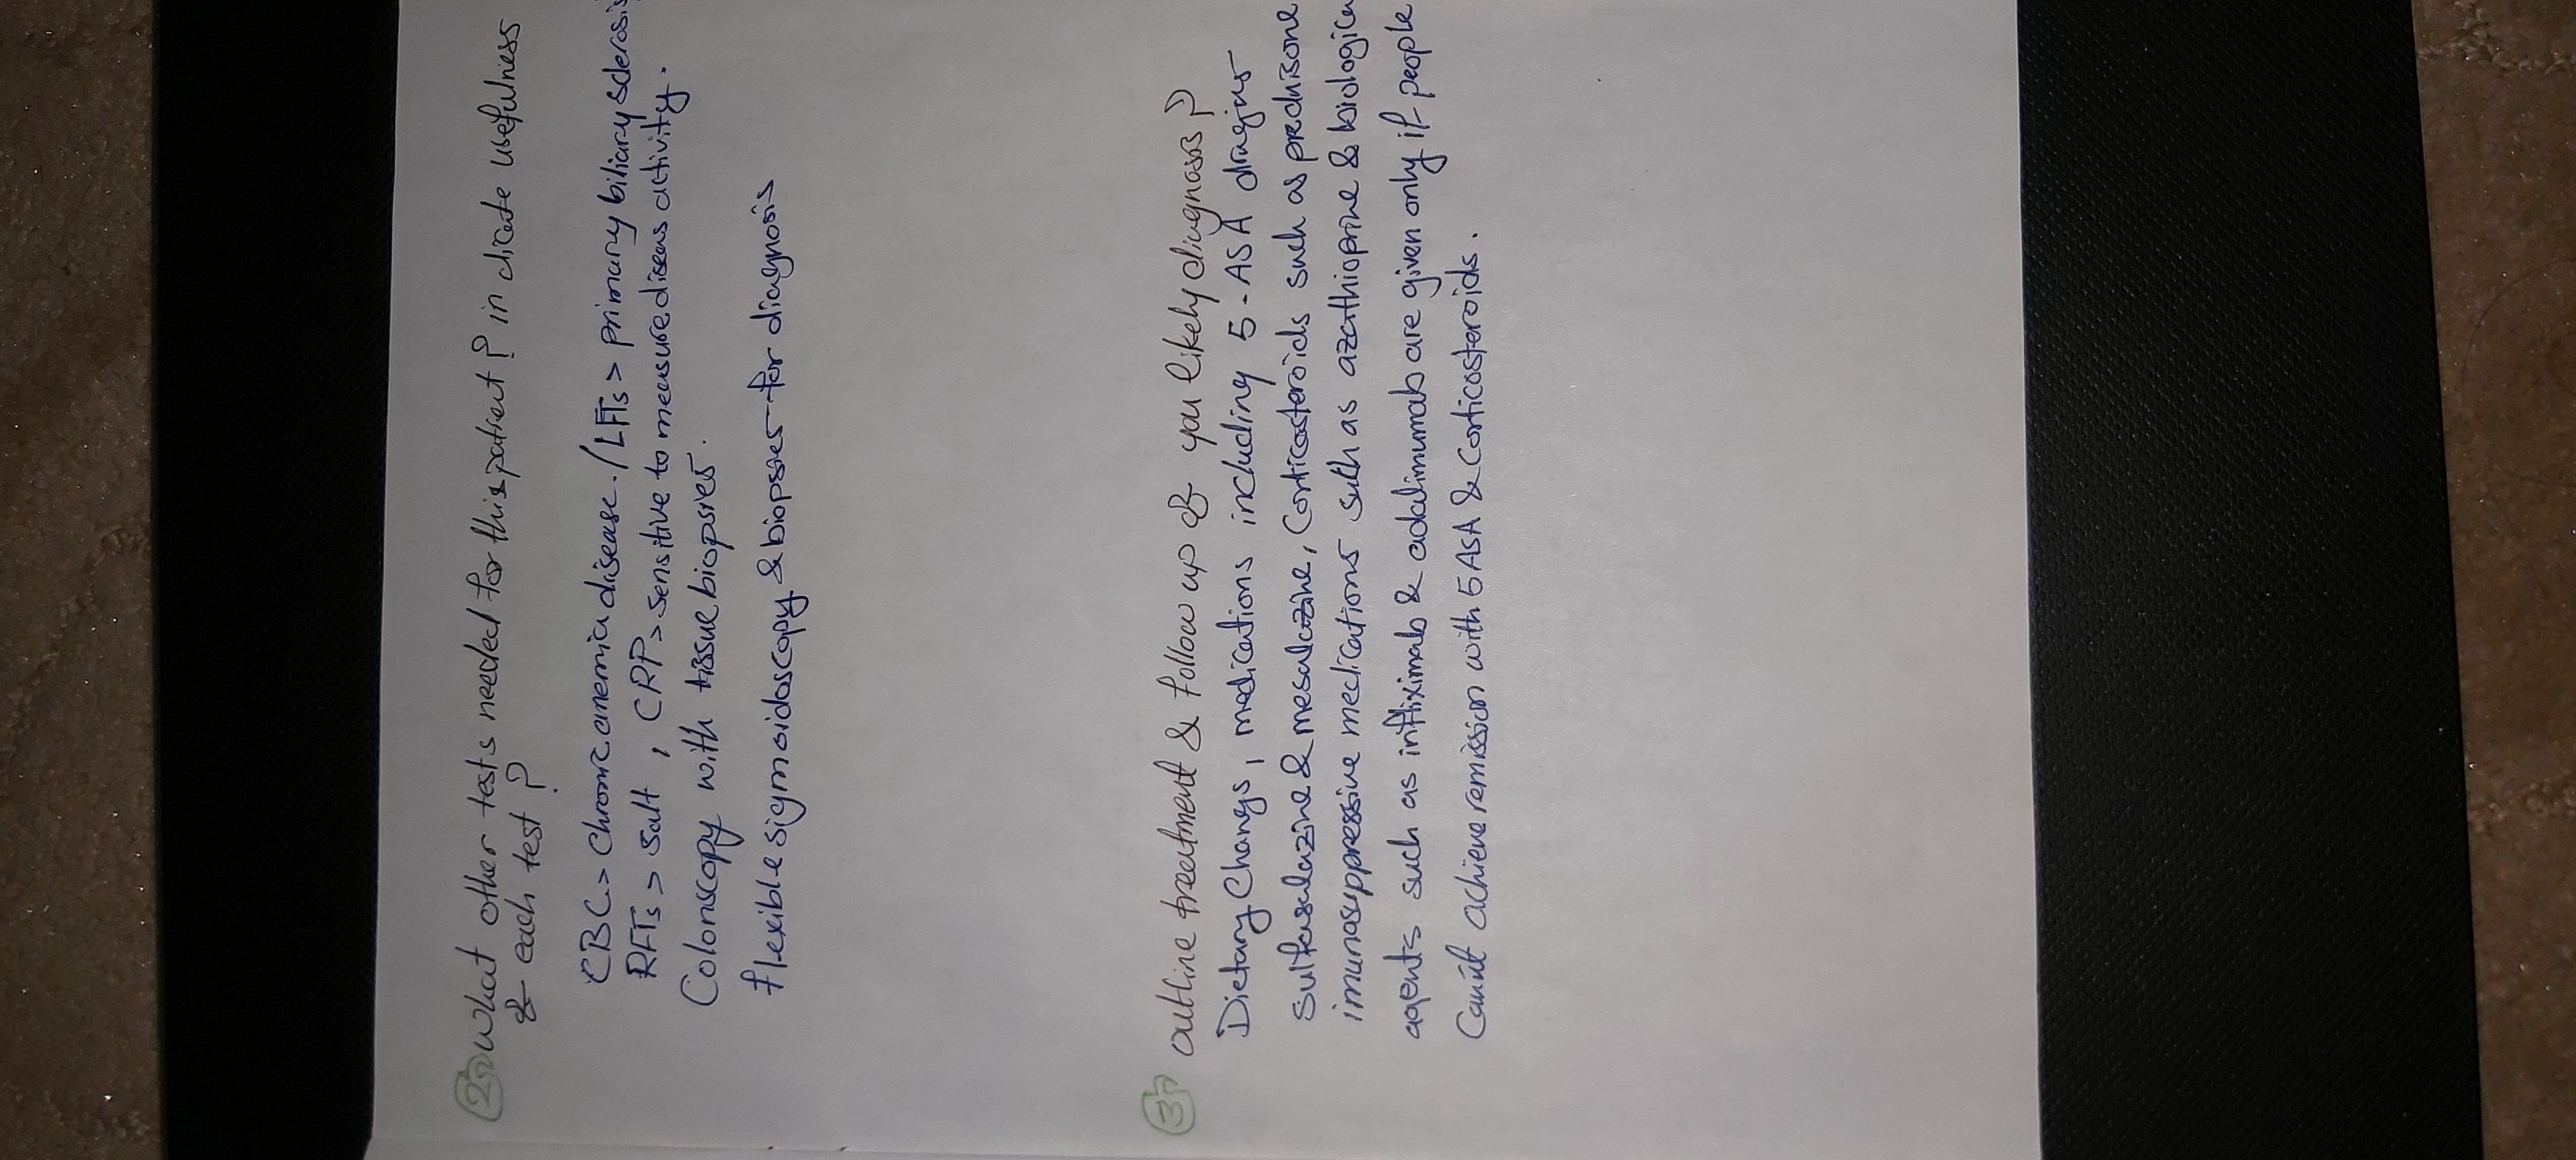 2) What other tests needed for this patient? indicate usefulness
of each test?
CBC > Chronic anemia disease. / LFTs > primary biliary sclerosis
RFTs > salt, CRP > sensitive to measure diseas activity.
Colonscopy with tissue biopsies.
flexible sigmoidoscopy & biopsies for diagnosis
3) outline treatment & follow up of you likely diagnosis?
Dietary Changs, medications including 5-ASA drugins
sulfasalazine & mesalazine, Corticosteroids such as prednisone
immunosuppressive medications such as azathioprine & biological
agents such as infliximab & adalimumab are given only if people
Can't achieve remission with 5ASA & Corticosteroids.